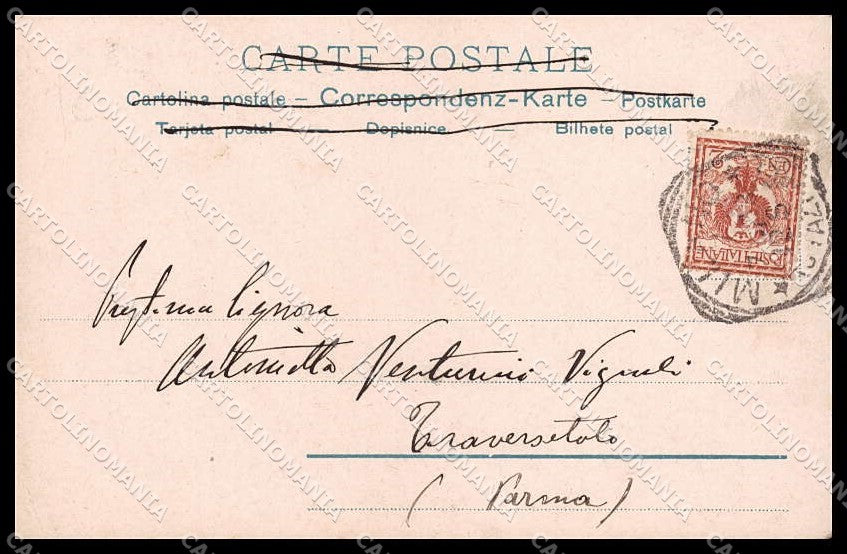 CARTE POSTALE
Cartolina postale – Correspondenz-Karte – Postkarte
Tarjeta postal — Dopisnice — Bilhete postal
POSTE ITALIANE
Signora
Antonietta Venturini Vignali
Traversetolo
(Parma)
CARTOLINOMANIA